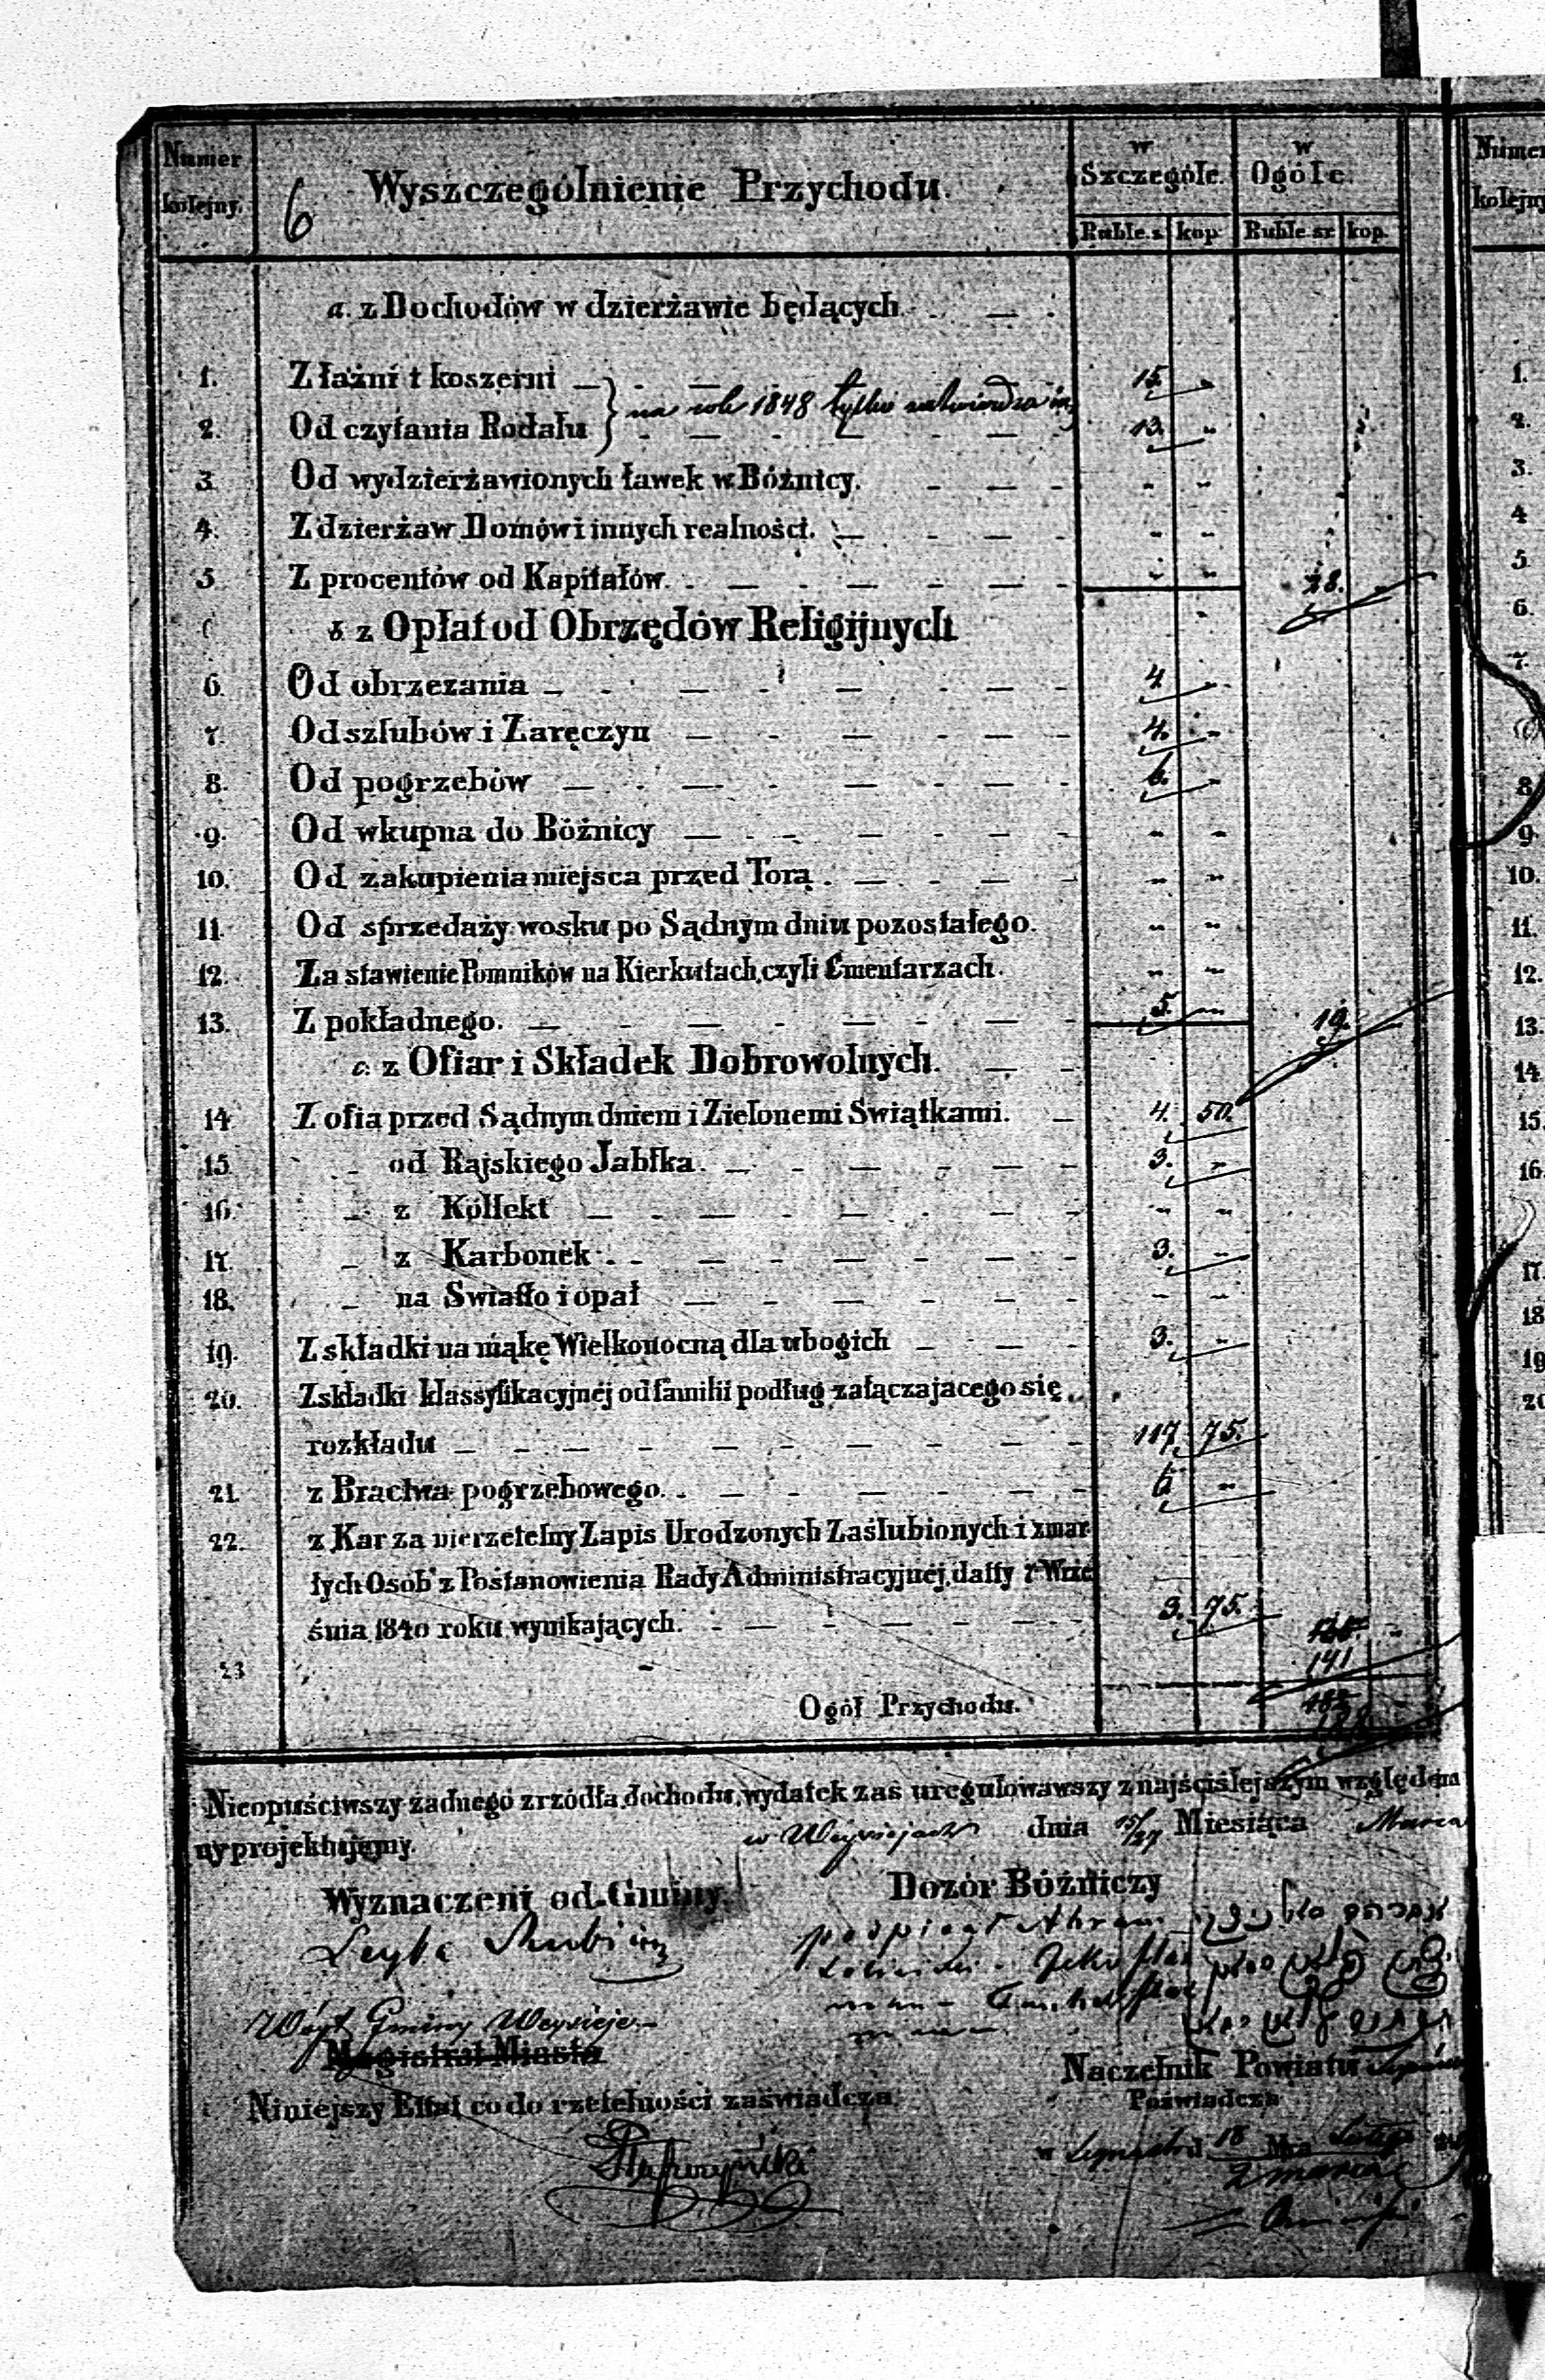 Numer kolejny. 6 Wyszczególnienie Przychodu. w Szczególe. w Ogóle.
Ruble.s kop. Ruble.sr kop.
a. z Dochodów w dzierżawie będących
1. Z łaźni i koszerni — 15. „
na rok 1848 tylko
2. Od czytania Rodału 13. „
3. Od wydzierżawionych ławek w Bóżnicy. „ „
4. Z dzierżaw Domów i innych realności. „ „
5. Z procentów od Kapitałów. „ „ 28. „
b z Opłat od Obrzędów Religijnych
6. Od obrzezania 4. „
7. Od szlubów i Zaręczyn 4. „
8. Od pogrzebów 6. „
9. Od wkupna do Bóżnicy „ „
10. Od zakupienia miejsca przed Torą. „ „
11. Od sprzedaży wosku po Sądnym dniu pozostałego. „ „
12. Za stawienie Pomników na Kierkutach, czyli Cmentarzach. „ „
13. Z pokładnego. 5. „ 19. „
c. z Ofiar i Składek Dobrowolnych.
14 Z ofia przed Sądnym dniem i Zielonemi Swiątkami. 4. 50.
15 „ od Rajskiego Jabłka. 3. „
16. „ z Kollekt „ „
17. „ z Karbonek. 3. „
18. „ na Swiatło i opał „ „
19. Z składki na mąkę Wielkonocną dla ubogich 3. „
20. Z składki klassyfikacyjnéj od familii podług załączajacego się
rozkładu 117. 75.
21. z Bractwa pogrzebowego. 6 „
22. z Kar za nierzetelny Zapis Urodzonych Zaślubionych i zmar
łych Osób z Postanowienia Rady Administracyjnéj, datty 7 Wrze
śnia 1840 roku wynikających. 3. 75.
141
23
Ogół Przychodu. 188
Nieopuściwszy żadnego zrzódła dochodu, wydatek zaś uregulowawszy z najściślejszym względem
ny projektujemy. w Wieysiejach dnia 15/27 Miesiąca Marca
Wyznaczeni od Gminy. Dozór Bóżniczy
Leyba podpisał Abram
Wóyt Gminy Weysieje
Magistrat Miasta
Naczelnik Powiatu
Niniejszy Etat co do rzetelności zaświadcza. Poświadcza
w d 18 Mca Lutego